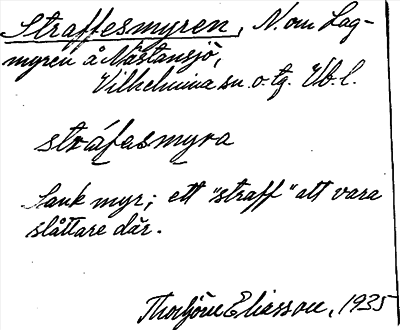 Straffesmyren, N. om Lag-
myren å Nästansjö,
Vilhelmina sn. o. tg. Vb. l.
stráfasmyra
Sank myr; ett "straff" att vara
slåttare där.
Thorbjörn Eliasson, 1935